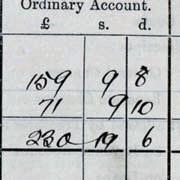 Ordinary Account.
£ s. d.
159 9 8
71 9 10
230 19 6